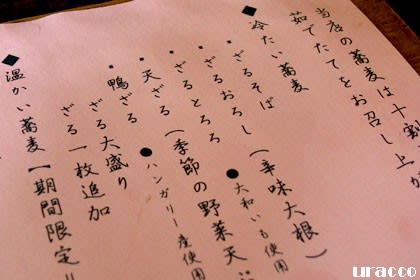 当店の蕎麦は十割
茹でたてをお召し上が
◆冷たい蕎麦
・ざるそば
・ざるおろし(辛味大根)
・ざるとろろ ●大和いも使用
・天ざる(季節の野菜天
・鴨ざる ●ハンガリー産使用
ざる大盛り
ざる一枚追加
◆温かい蕎麦【期間限定
uracco